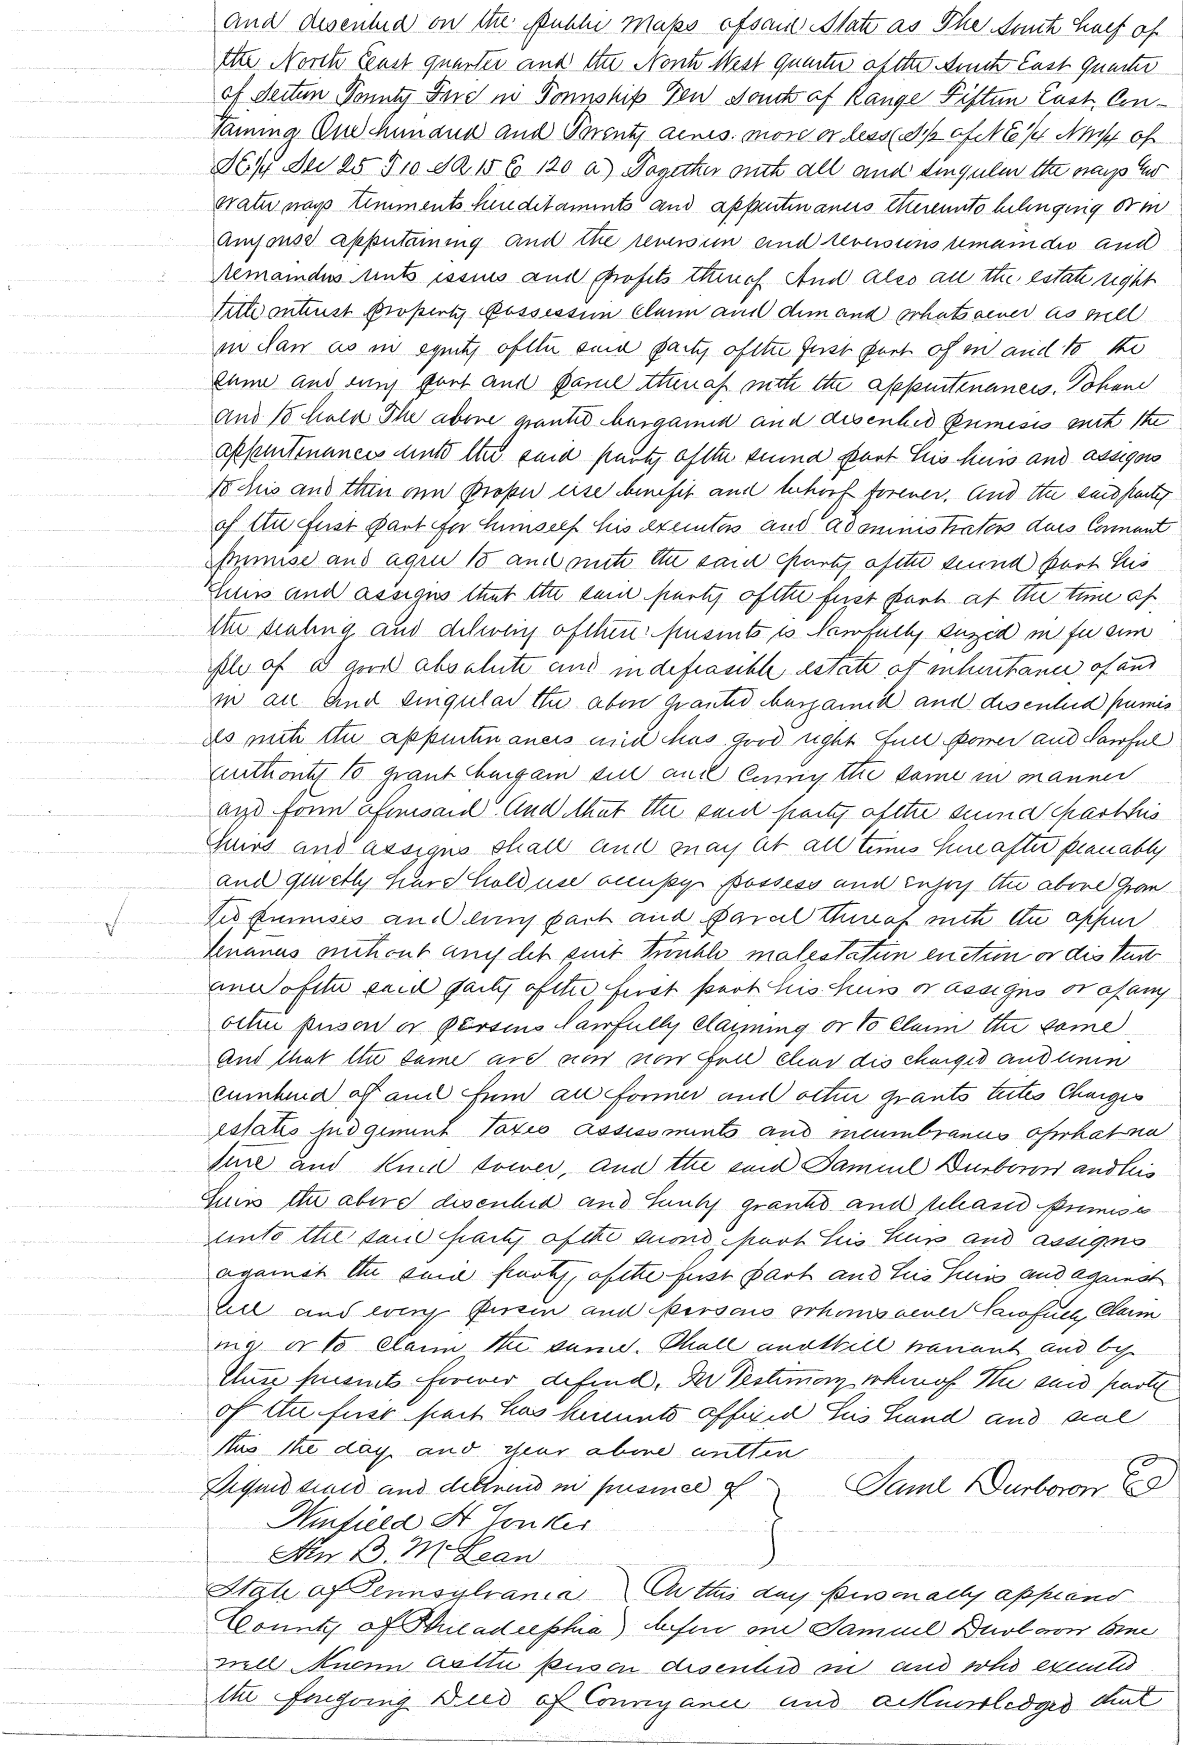 and described on the public maps of said State as The South half of
the North East quarter and the North West Quarter of the South East Quarter
of Section Twenty Five in Township Ten South of Range Fifteen East, Con-
taining One hundred and Twenty acres more or less (S½ of NE¼ NW¼ of
SE¼ Sec 25 T10 S R 15 E 120 a) Together with all and singular the ways
water ways tenements hereditaments and appurtenances thereunto belonging or in
anywise appertaining and the reversion and reversions remainder and
remainders rents issues and profits thereof And also all the estate right
title interest property possession claim and demand whatsoever as well
in law as in equity of the said party of the first part of in and to the
same and every part and parcel thereof with the appurtenances. To have
and to hold The above granted bargained and described premises with the
appurtenances unto the said party of the second part his heirs and assigns
to his and their own proper use benefit and behoof forever. And the said party
of the first part for himself his executors and administrators does Covenant
promise and agree to and with the said party of the second part his
heirs and assigns that the said party of the first part at the time of
the sealing and delivery of these presents is lawfully seized in fee sim
ple of a good absolute and indefeasible estate of inheritance of and
in all and singular the above granted bargained and described premis
es with the appurtenances and has good right full power and lawful
authority to grant bargain sell and Convey the same in manner
and form aforesaid And that the said party of the second part his
heirs and assigns shall and may at all times hereafter peaceably
and quietly have hold use occupy possess and enjoy the above gran
ted premises and every part and parcel thereof with the appur
tenances without any let suit trouble molestation eviction or disturb
ance of the said party of the first part his heirs or assigns or of any
other person or persons lawfully claiming or to claim the same
And that the same are now now free clear discharged and unin
cumbered of and from all former and other grants titles Charges
estates judgement taxes assessments and incumbrances of what na
ture and kind soever, and the said Samuel Durborow and his
heirs the above described and hereby granted and released premises
unto the said party of the second part his heirs and assigns
against the said party of the first part and his heirs and against
all and every person and persons whomsoever lawfully Claim
ing or to claim the same. Shall and Will warrant and by
these presents forever defend, In Testimony whereof The said party
of the first part has hereunto affixed his hand and seal
this the day and year above written
Signed sealed and delivered in presence of } Saml Durborow
Winfield H Yonker
B. McLean
State of Pennsylvania ) On this day personally appeard
County of Philadelphia ) before me Samuel Durborow to me
well Known as the person described in and who executed
the foregoing Deed of Conveyance and acknowledged that